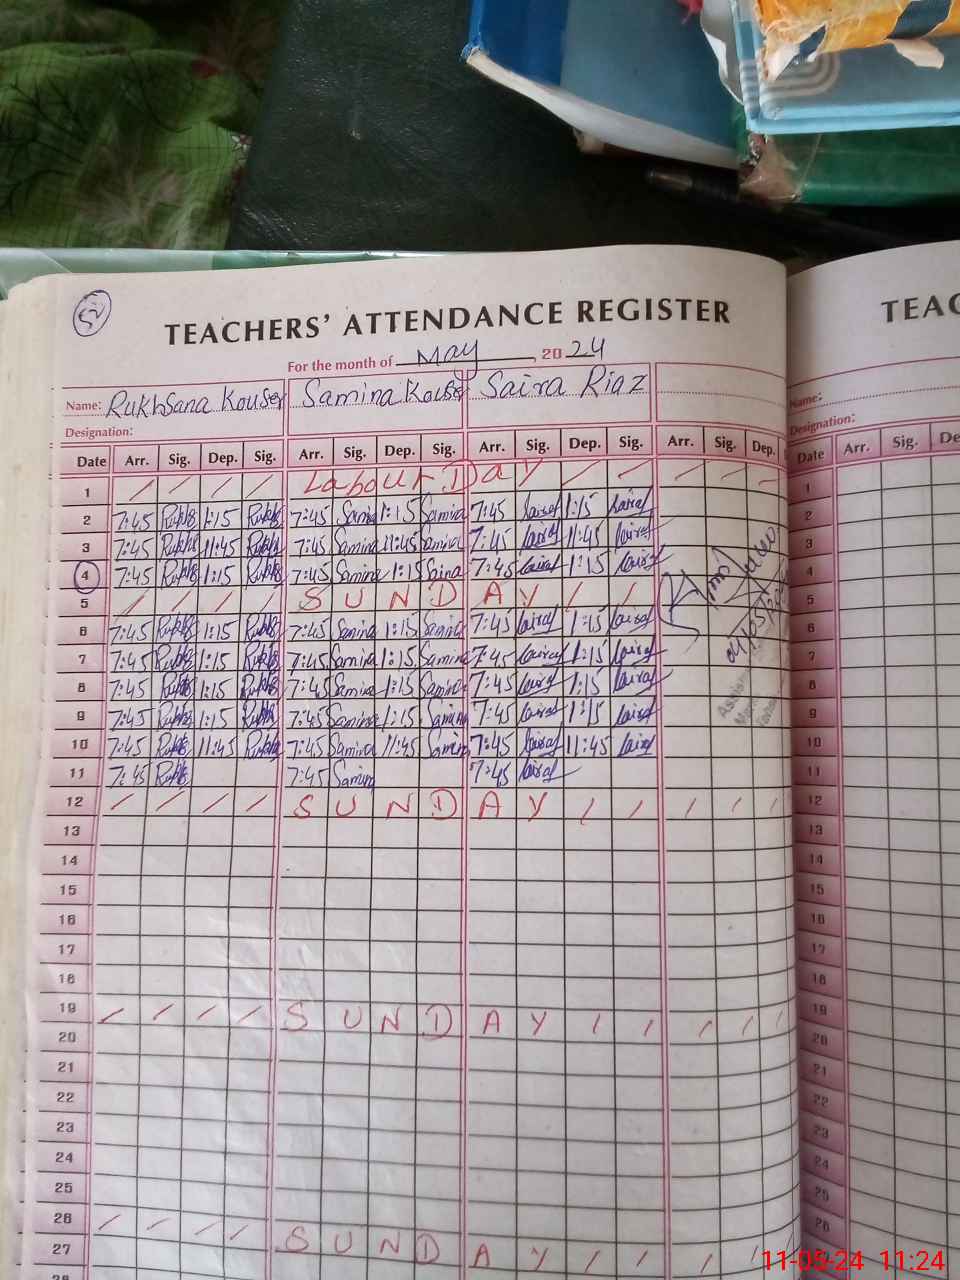 52
TEACHERS' ATTENDANCE REGISTER
For the month of May, 2024
Name: Rukhsana Kouser Samina Kouser Saira Riaz
Designation:
Date Arr. Sig. Dep. Sig. Arr. Sig. Dep. Sig. Arr. Sig. Dep. Sig. Arr. Sig. Dep.
1 / / / / Labour Day / /
2 7:45 Rukhs 1:15 Rukhs 7:45 Samina 1:15 Samina 7:45 1:15
3 7:45 Rukhs 11:45 Rukhs 7:45 Samina 11:45 Samina 7:45 11:45
4 7:45 Rukhs 1:15 Rukhs 7:45 Samina 1:15 Saina 7:45 1:15
5 / / / / S U N D A Y / /
6 7:45 Rukhs 1:15 Rukhs 7:45 Samina 1:15 Samina 7:45 1:15
7 7:45 Rukhs 1:15 Rukhs 7:45 Samina 1:15 Samina 7:45 1:15
8 7:45 Rukhs 1:15 Rukhs 7:45 Samina 1:15 Samina 7:45 1:15
9 7:45 Rukhs 1:15 Rukhs 7:45 Samina 1:15 Samina 7:45 1:15
10 7:45 Rukhs 11:45 Rukhs 7:45 Samina 11:45 Samina 7:45 11:45
11 7:45 Rukhs 7:45 Samina 7:45
12 / / / / S U N D A Y / / / / /
13
14
15
16
17
18
19 / / / / S U N D A Y / / / / /
20
21
22
23
24
25
26 / / / / S U N D A Y / / / /
27
28
TEAC
Name:
Designation:
Date Arr. Sig. De
1
2
3
4
5
6
7
8
9
10
11
12
13
14
15
16
17
18
19
20
21
22
23
24
25
26
11-05-24 11:24